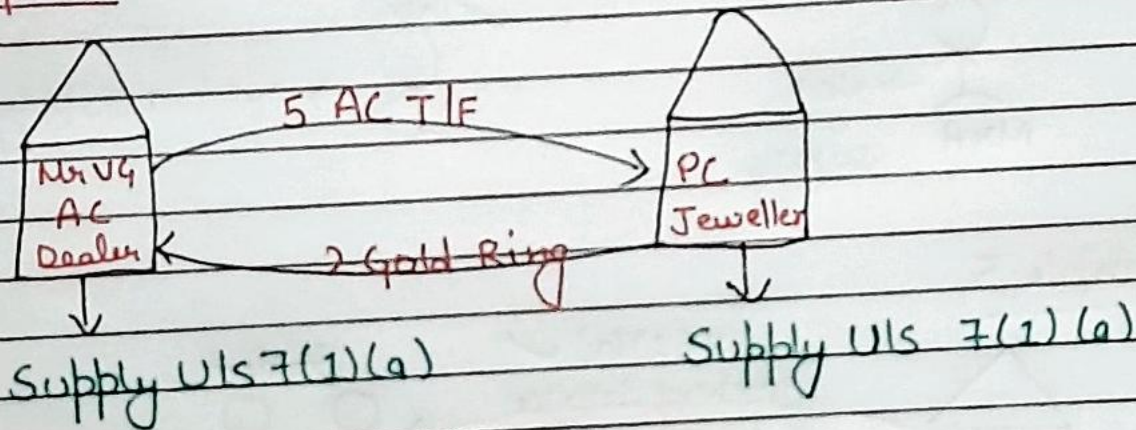 5 AC T/F
Mr VG
AC
Dealer
PC
Jeweller
2 Gold Ring
Supply U/s 7(1)(a)
Supply U/s 7(1)(a)